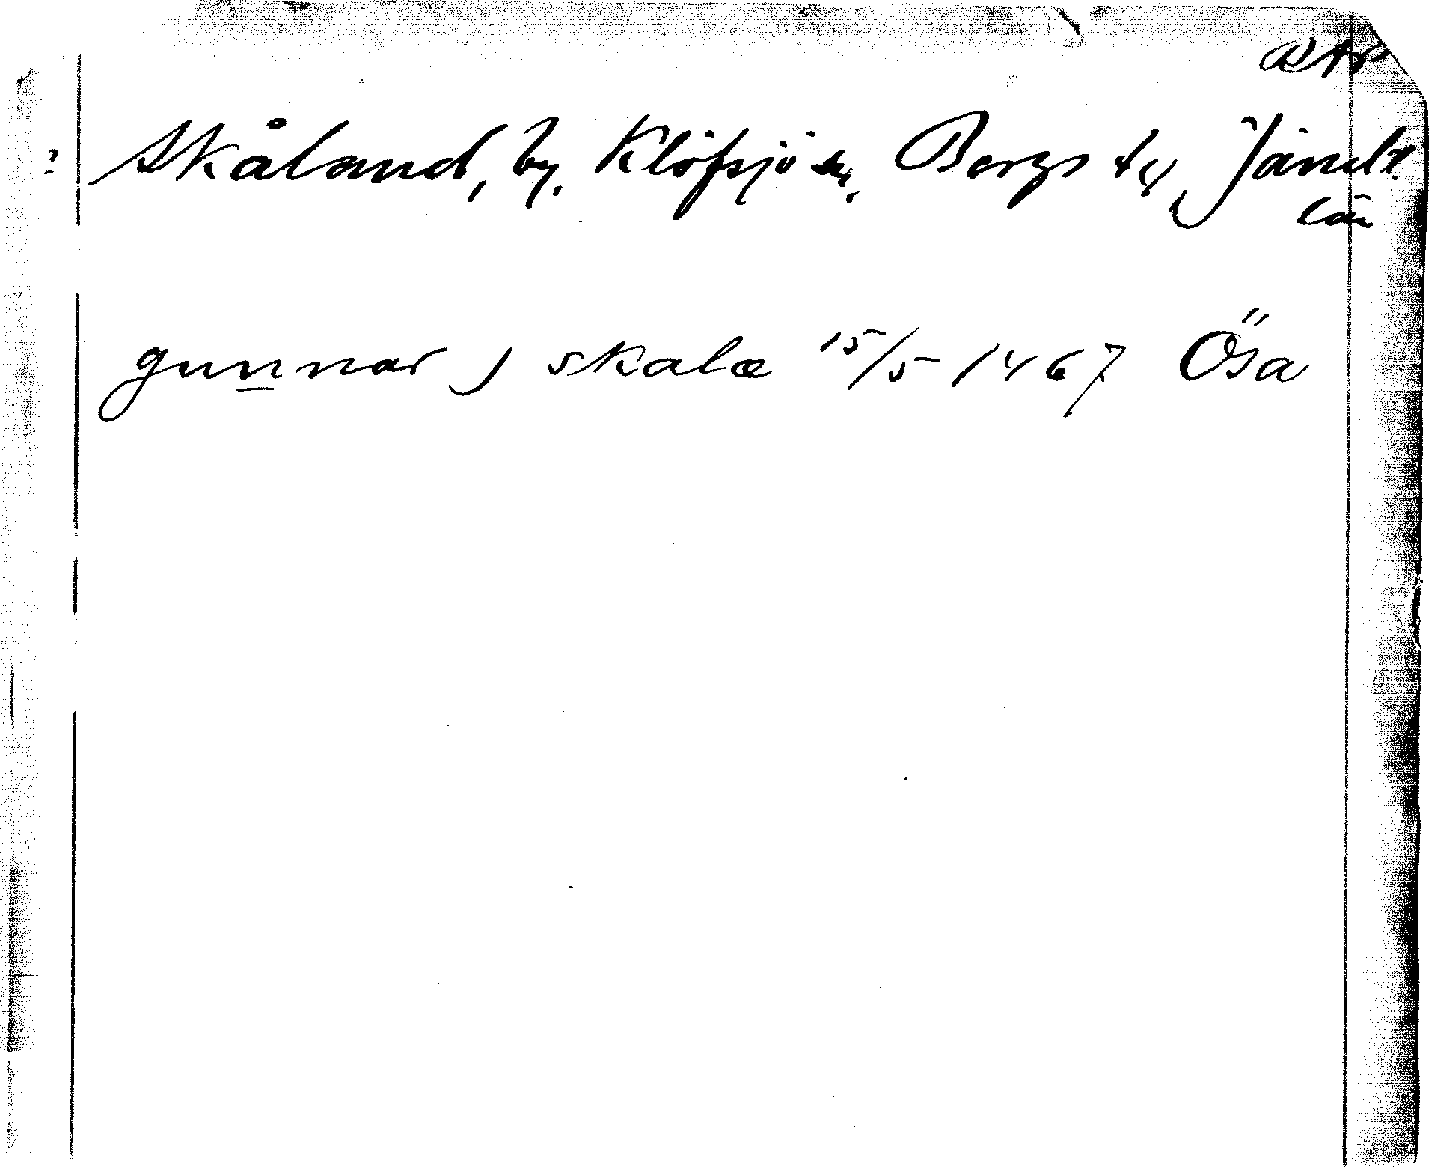 ? Skåland, by. Klöfsjö sn, Bergs tg, Jämtl.
län
gunnar j skalæ 15/5 1467 Ösa